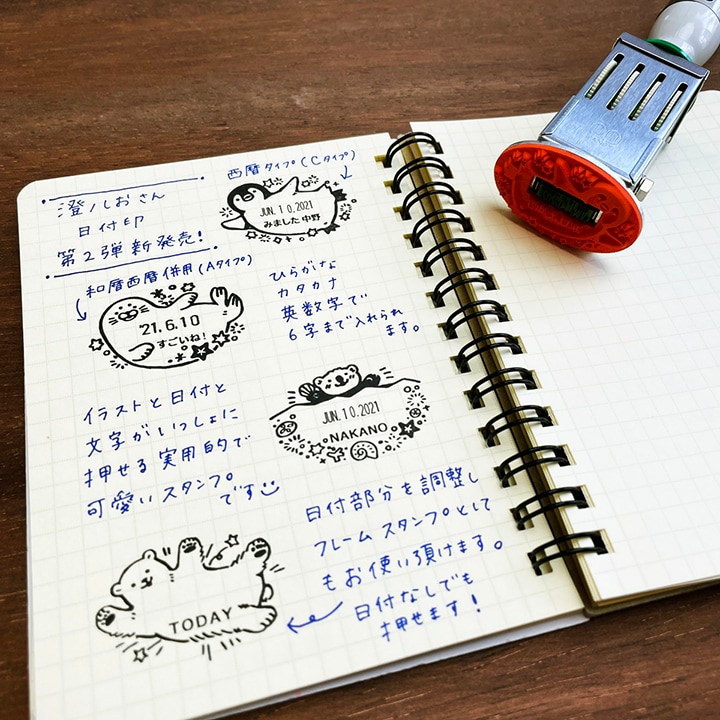 澄ノしおさん
日付印
第2弾新発売!
西暦タイプ(Cタイプ)
JUN.10.2021
みました 中野
和暦西暦併用(Aタイプ)
21.6.10
すごいね!
ひらがな
カタカナ
英数字で
6字まで入れられ
ます。
イラストと日付と
文字がいっしょに
押せる実用的で
可愛いスタンプ
です
JUN.10.2021
NAKANO
日付部分を調整し
フレームスタンプとして
もお使い頂けます。
日付なしでも
押せます!
TODAY